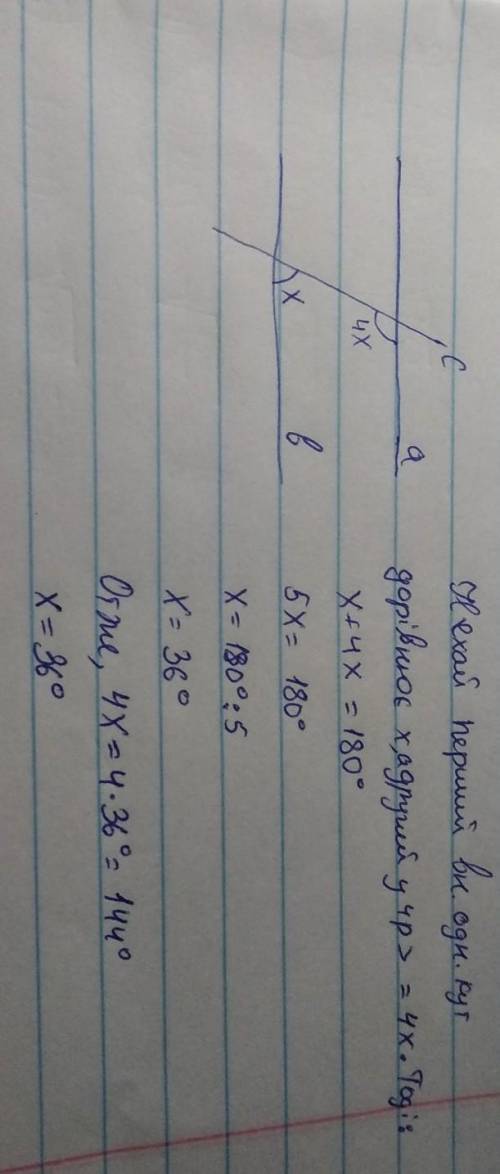 c
a
4x
x
в
Нехай перший вн. одн. кут
дорівнює x, а другий у 4р > = 4x. Тоді:
x + 4x = 180°
5x = 180°
x = 180° : 5
x = 36°
Отже, 4x = 4 · 36° = 144°
x = 36°